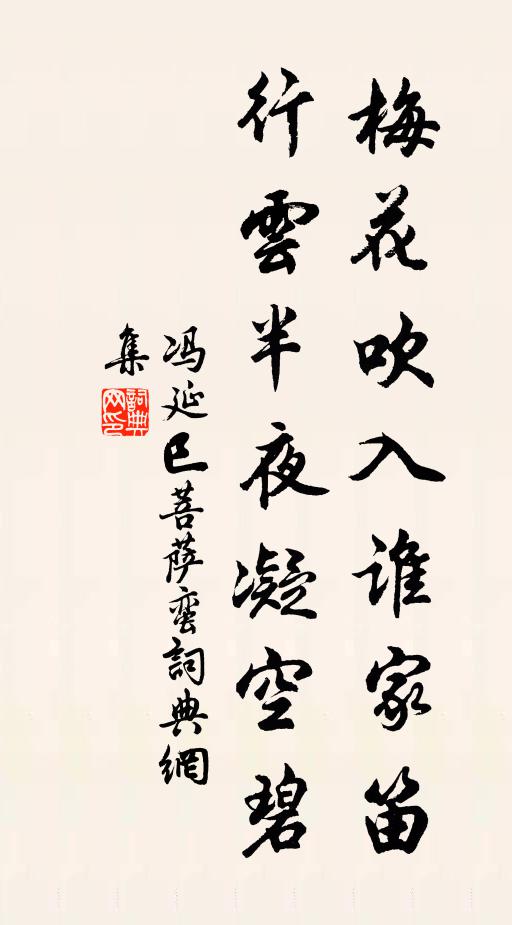 梅花吹入谁家笛
行雲半夜凝空碧
冯延巳菩萨蛮詞典網
集
詞典
网印